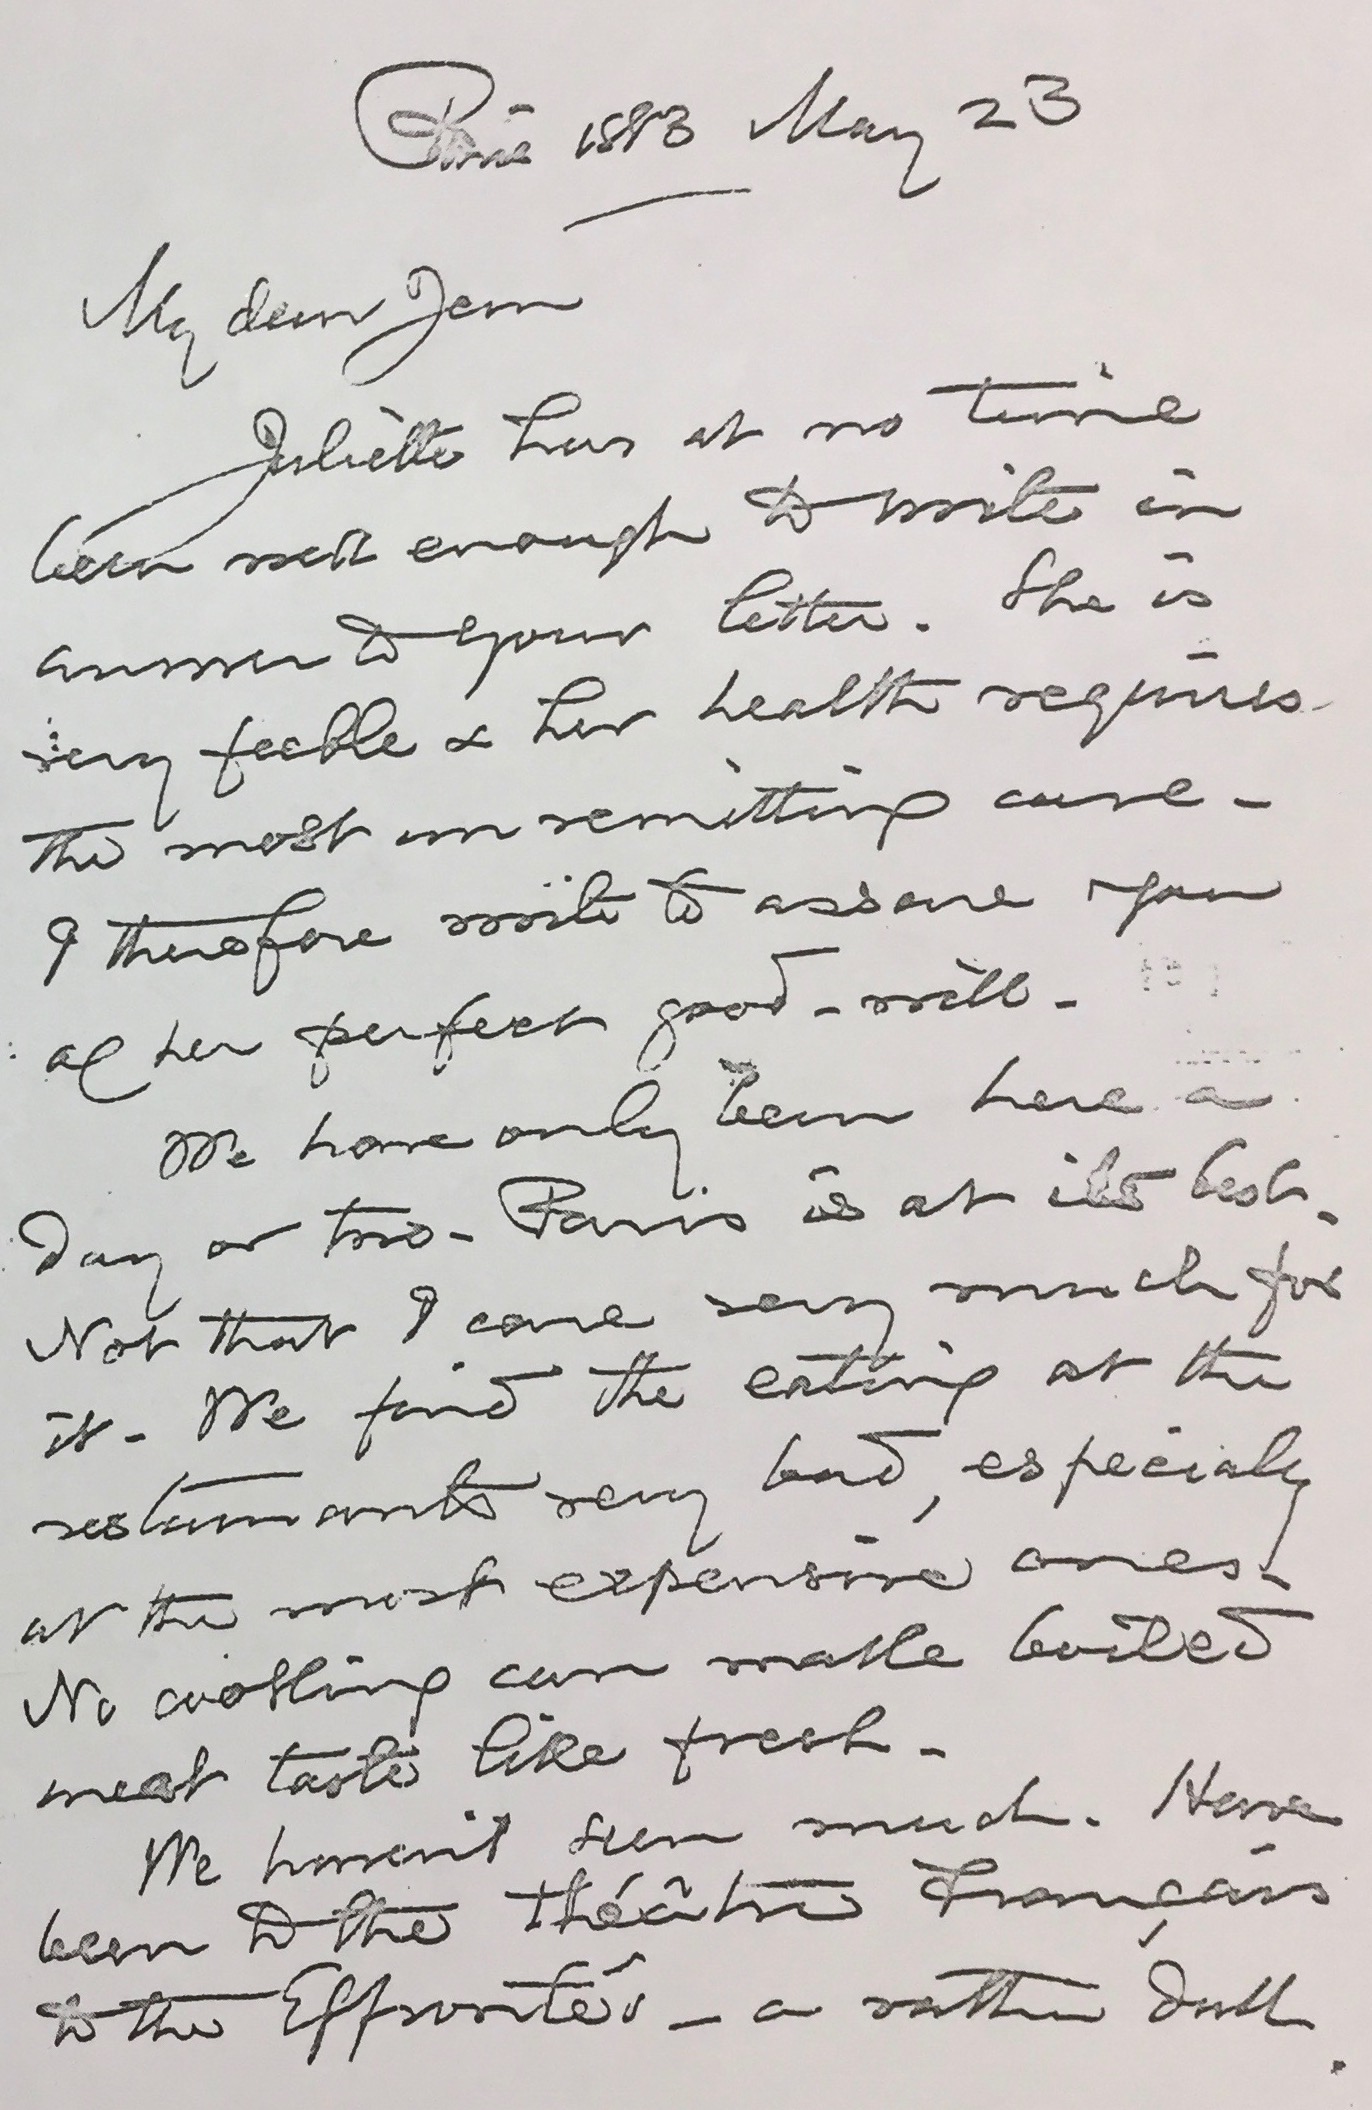 Paris 1883 May 23
My dear Jem
Juliette has at no time
been well enough to write in
answer to your letter. She is
very feeble & her health requires
the most unremitting care -
I therefore write to assure you
of her perfect good-will -
We have only been here a
day or two - Paris is at its best.
Not that I care very much for
it - We find the eating at the
restaurants very bad, especialy
at the most expensive ones -
No cooking can make boiled
meat taste like fresh -
We haven't seen much. Have
been to the théâtre Français
to the Effrontés - a rather dull